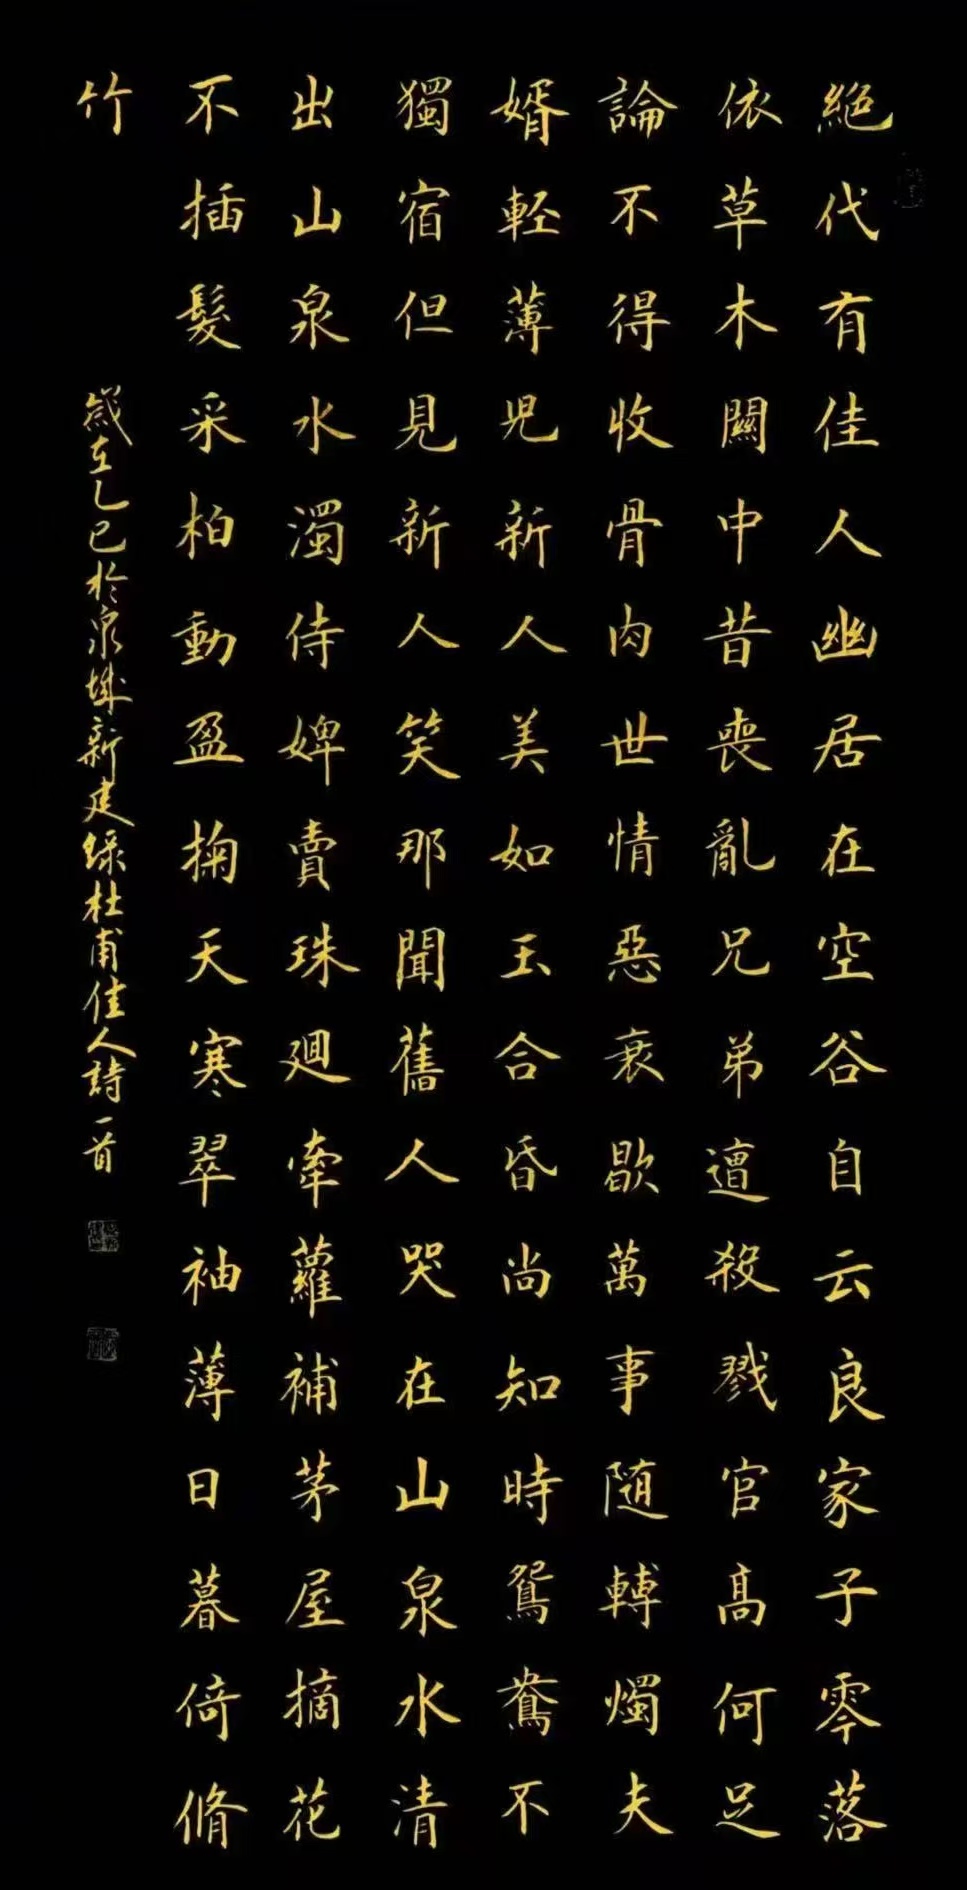 絕代有佳人幽居在空谷自云良家子零落
依草木關中昔喪亂兄弟遭殺戮官高何足
論不得收骨肉世情惡衰歇萬事随轉燭夫
婿輕薄児新人美如玉合昏尚知時鴛鴦不
獨宿但見新人笑那聞舊人哭在山泉水清
出山泉水濁侍婢賣珠迴牽蘿補茅屋摘花
不插髮采柏動盈掬天寒翠袖薄日暮倚脩
竹
歲在乙巳於泉城新建録杜甫佳人詩一首